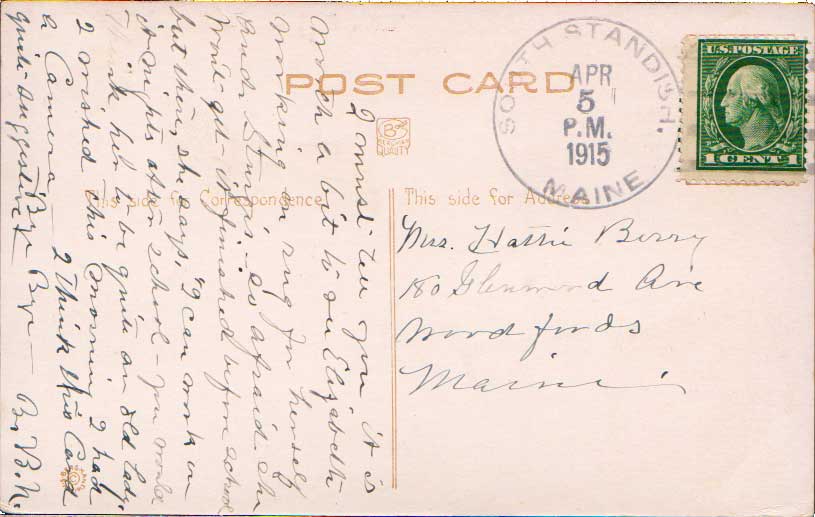 POST CARD
This side for Correspondence
This side for Address
SOUTH STANDISH.
APR
5
P.M.
1915
MAINE
U.S. POSTAGE
1 CENT 1
BERGMAN
QUALITY
Mrs. Hattie Berry
180 Glenwood Ave
Woodfords
Maine
I must tell you it is
worth a bit to see Elizabeth
working on rug for herself
and so afraid she
won't get it finished before school
but then, she says, "I can work on
it nights after school - you would
Think her to be quite an old lady.
I wished this morning I had
a Camera - I think this Card
quite suggestive Bye Bye - B.B.N.